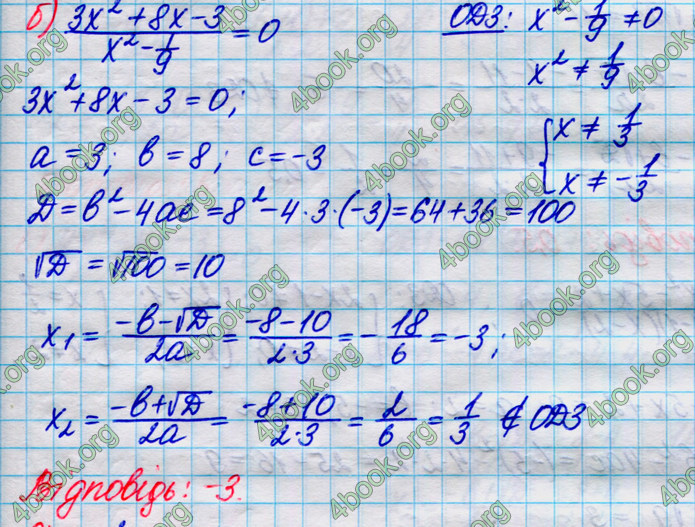 б) (3x² + 8x - 3)/(x² - 1/9) = 0    ОДЗ: x² - 1/9 ≠ 0
x² ≠ 1/9
3x² + 8x - 3 = 0;
{ x ≠ 1/3
x ≠ -1/3
a = 3; b = 8; c = -3
Д = b² - 4ac = 8² - 4·3·(-3) = 64 + 36 = 100
√Д = √100 = 10
x₁ = (-b - √Д)/2a = (-8 - 10)/(2·3) = - 18/6 = -3;
x₂ = (-b + √Д)/2a = (-8 + 10)/(2·3) = 2/6 = 1/3 ∉ ОДЗ
Відповідь: -3.
4book.org